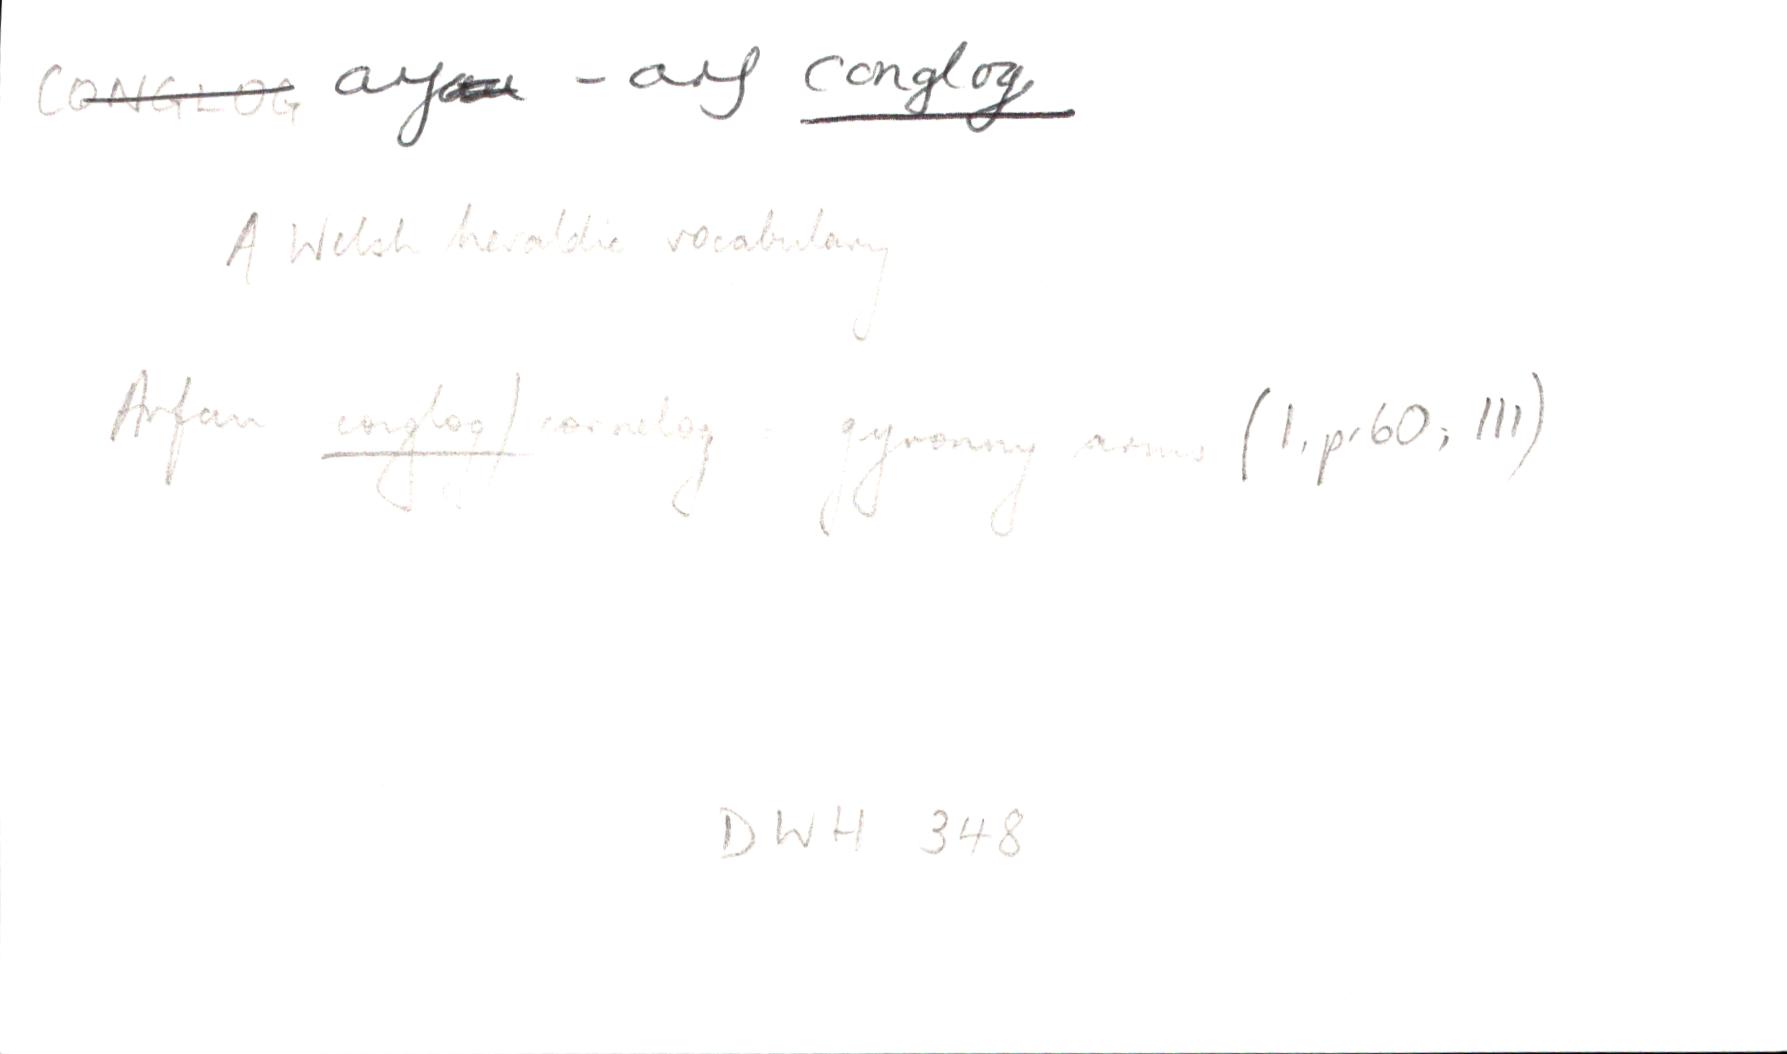 CONGLOG arf - arf conglog
A Welsh heraldic vocabulary
Arfau conglog / cornelog - gyronny arms (1, p.60; 111)
DWH 348